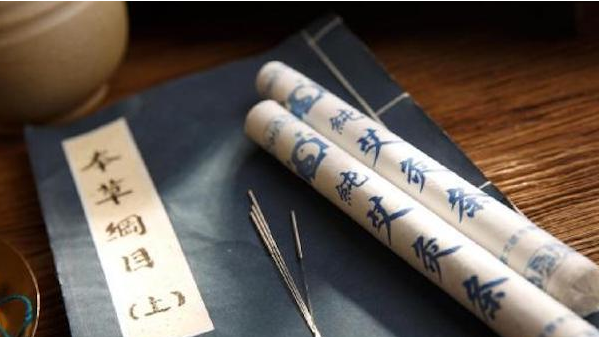 本草綱目(上)
純艾灸条
純艾灸条